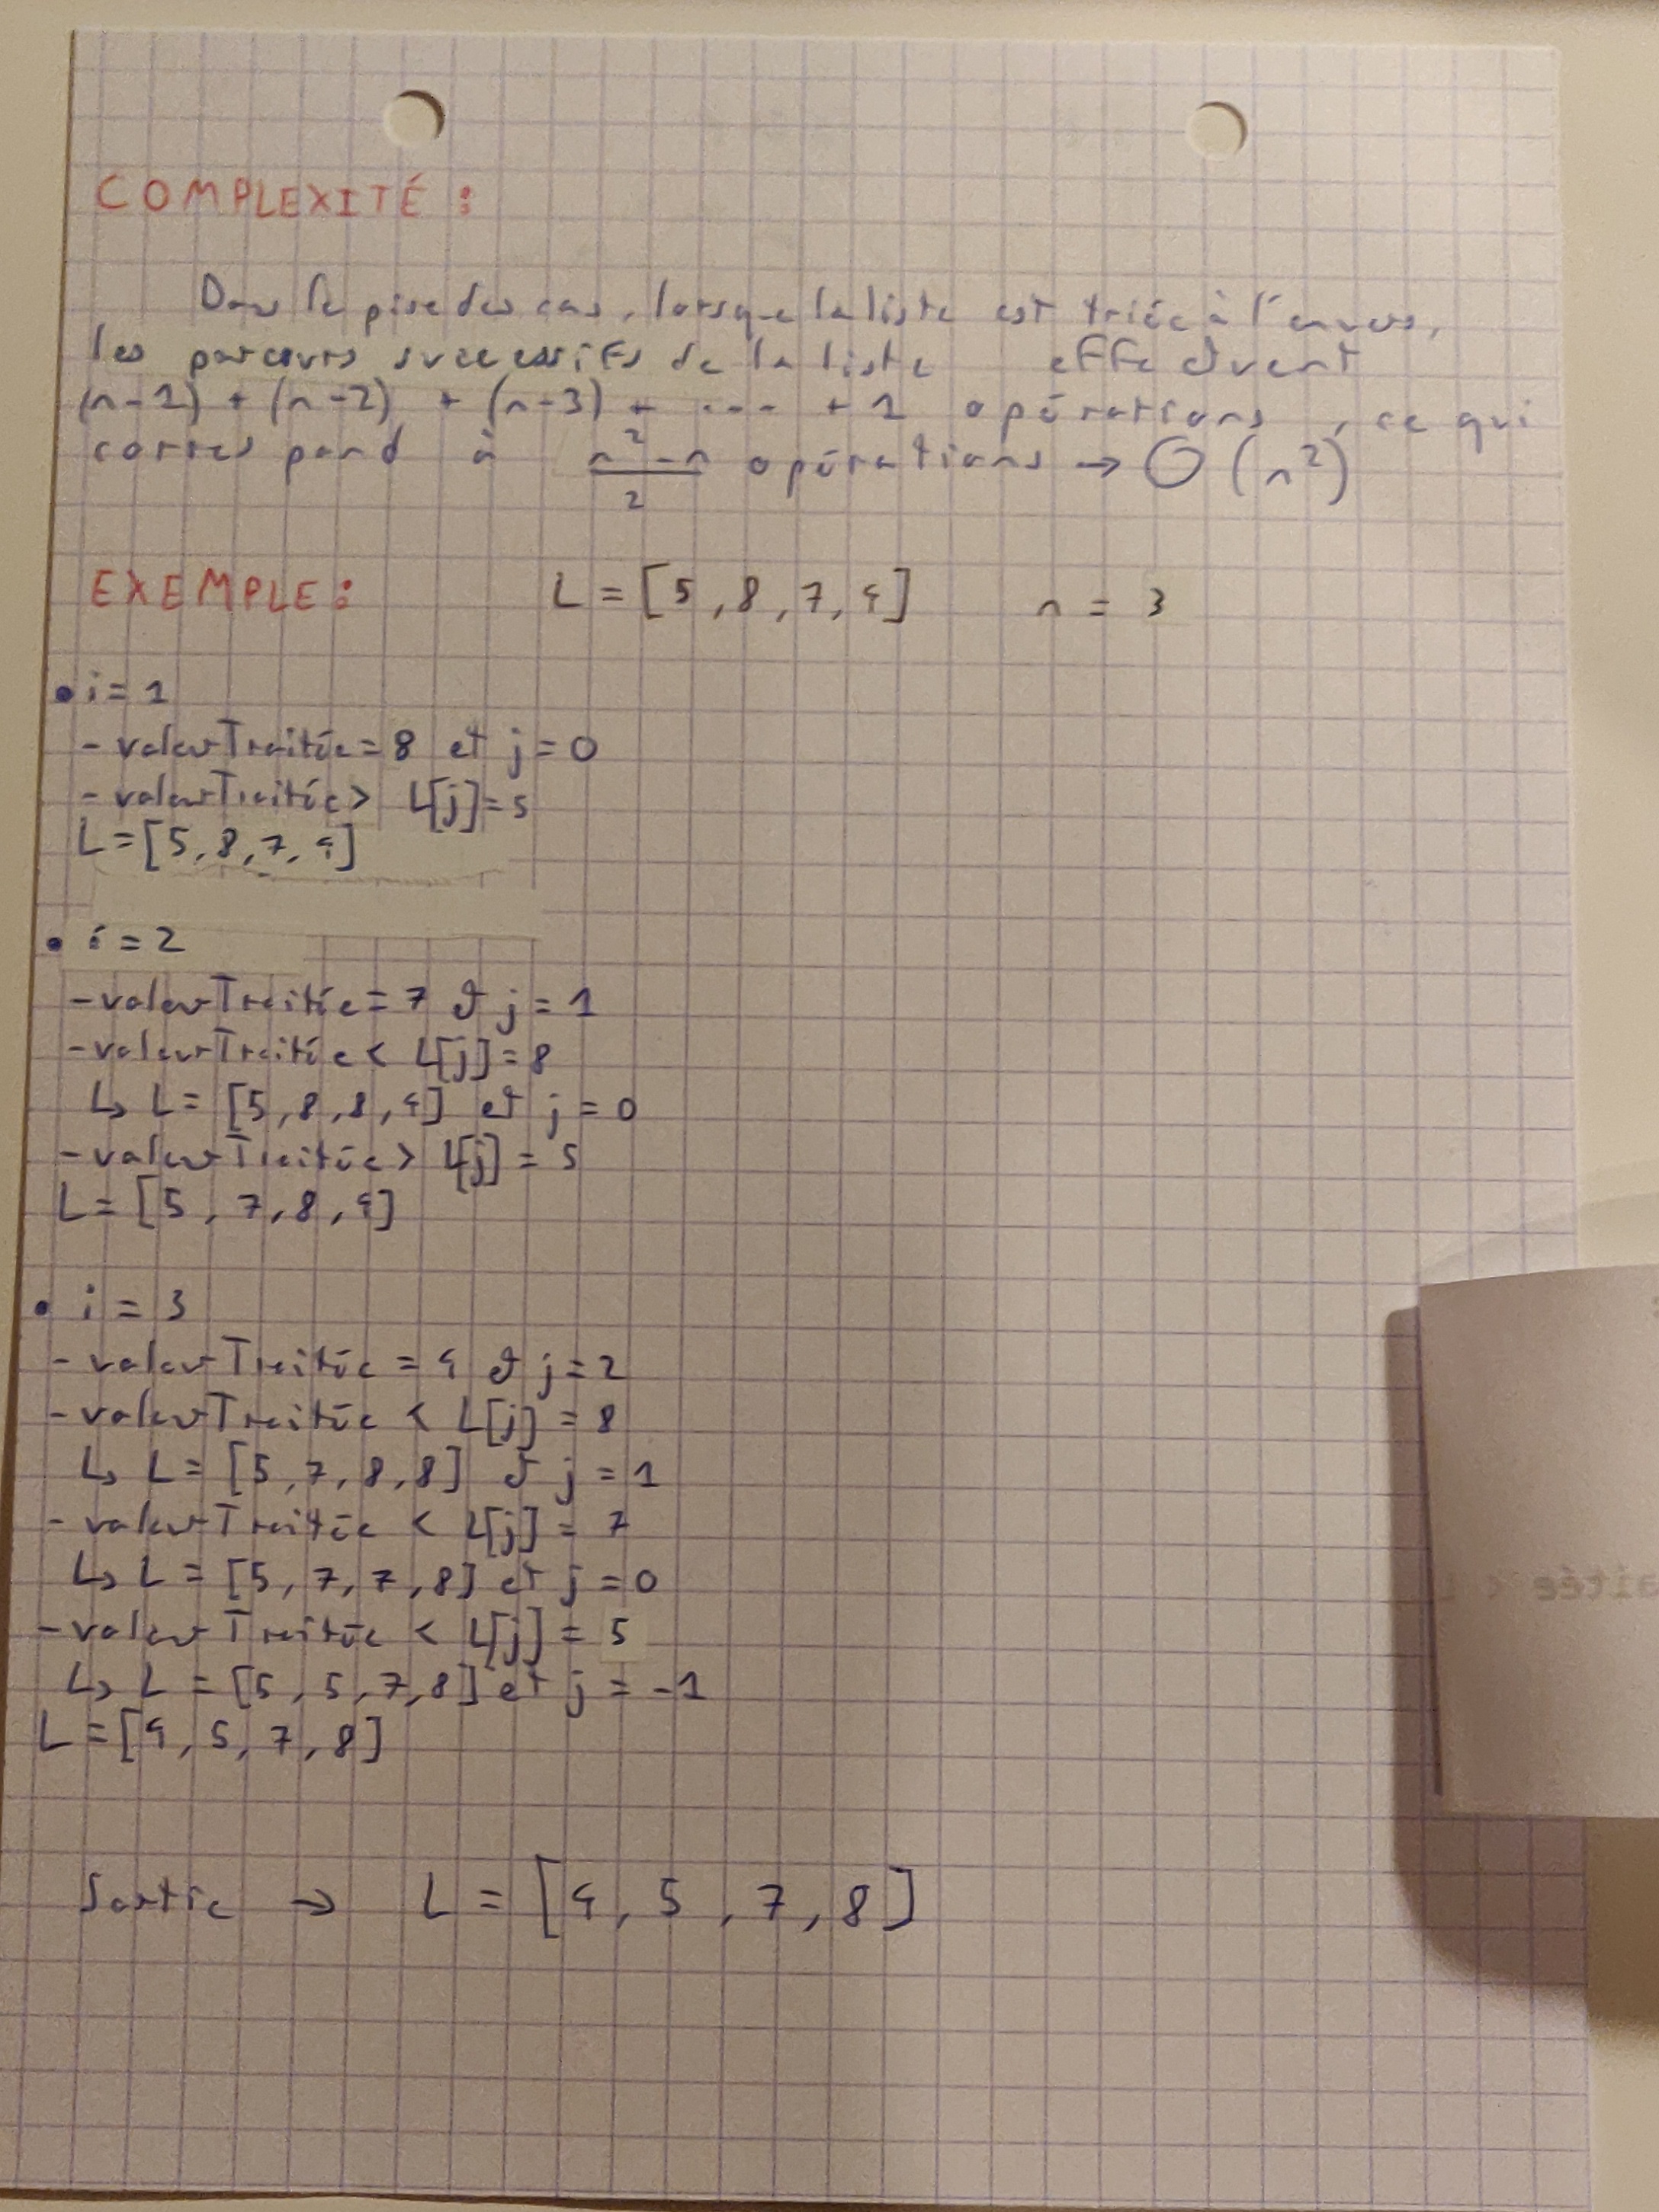 COMPLEXITÉ :
Dans le pire des cas, lorsque la liste est triée à l'envers,
les parcours successifs de la liste effectuent
(n-1) + (n-2) + (n-3) + ... + 1 opérations, ce qui
correspond à (n²-n)/2 opérations → O(n²)
EXEMPLE : L = [5, 8, 7, 4] n = 3
• i = 1
- valeurTraitée = 8 et j = 0
- valeurTraitée > L[j] = 5
L = [5, 8, 7, 4]
• i = 2
- valeurTraitée = 7 et j = 1
- valeurTraitée < L[j] = 8
↳ L = [5, 8, 8, 4] et j = 0
- valeurTraitée > L[j] = 5
L = [5, 7, 8, 4]
• i = 3
- valeurTraitée = 4 et j = 2
- valeurTraitée < L[j] = 8
↳ L = [5, 7, 8, 8] et j = 1
- valeurTraitée < L[j] = 7
↳ L = [5, 7, 7, 8] et j = 0
- valeurTraitée < L[j] = 5
↳ L = [5, 5, 7, 8] et j = -1
L = [4, 5, 7, 8]
Sortie → L = [4, 5, 7, 8]